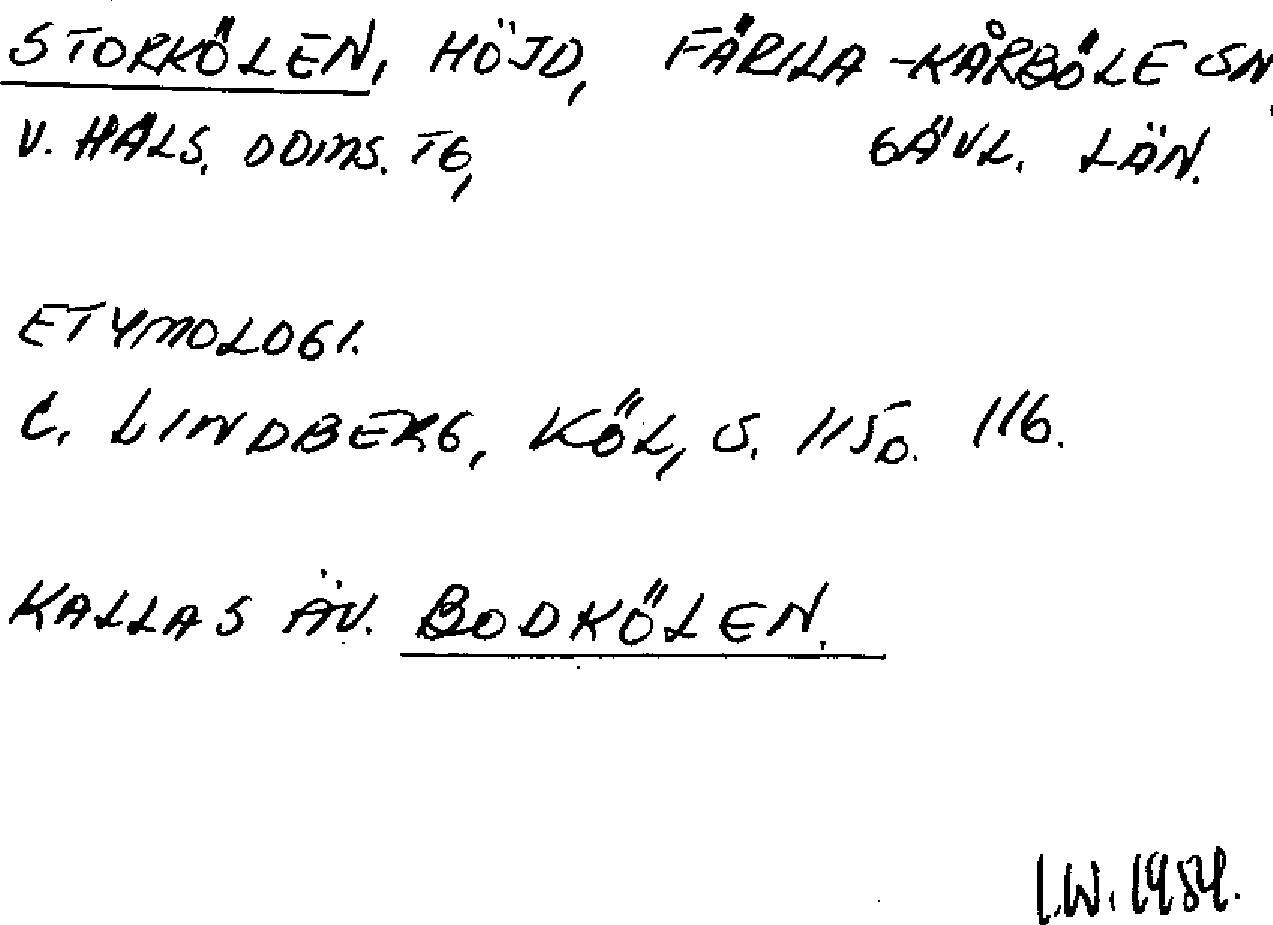 STORKÖLEN, HÖJD, FÄRILA-KÅRBÖLE SN,
V. HÄLS. DOMS. TG, GÄVL. LÄN.
ETYMOLOGI.
C. LINDBERG, KÖL, S. 115 o. 116.
KALLAS ÄV. BODKÖLEN.
I.W. 1984.